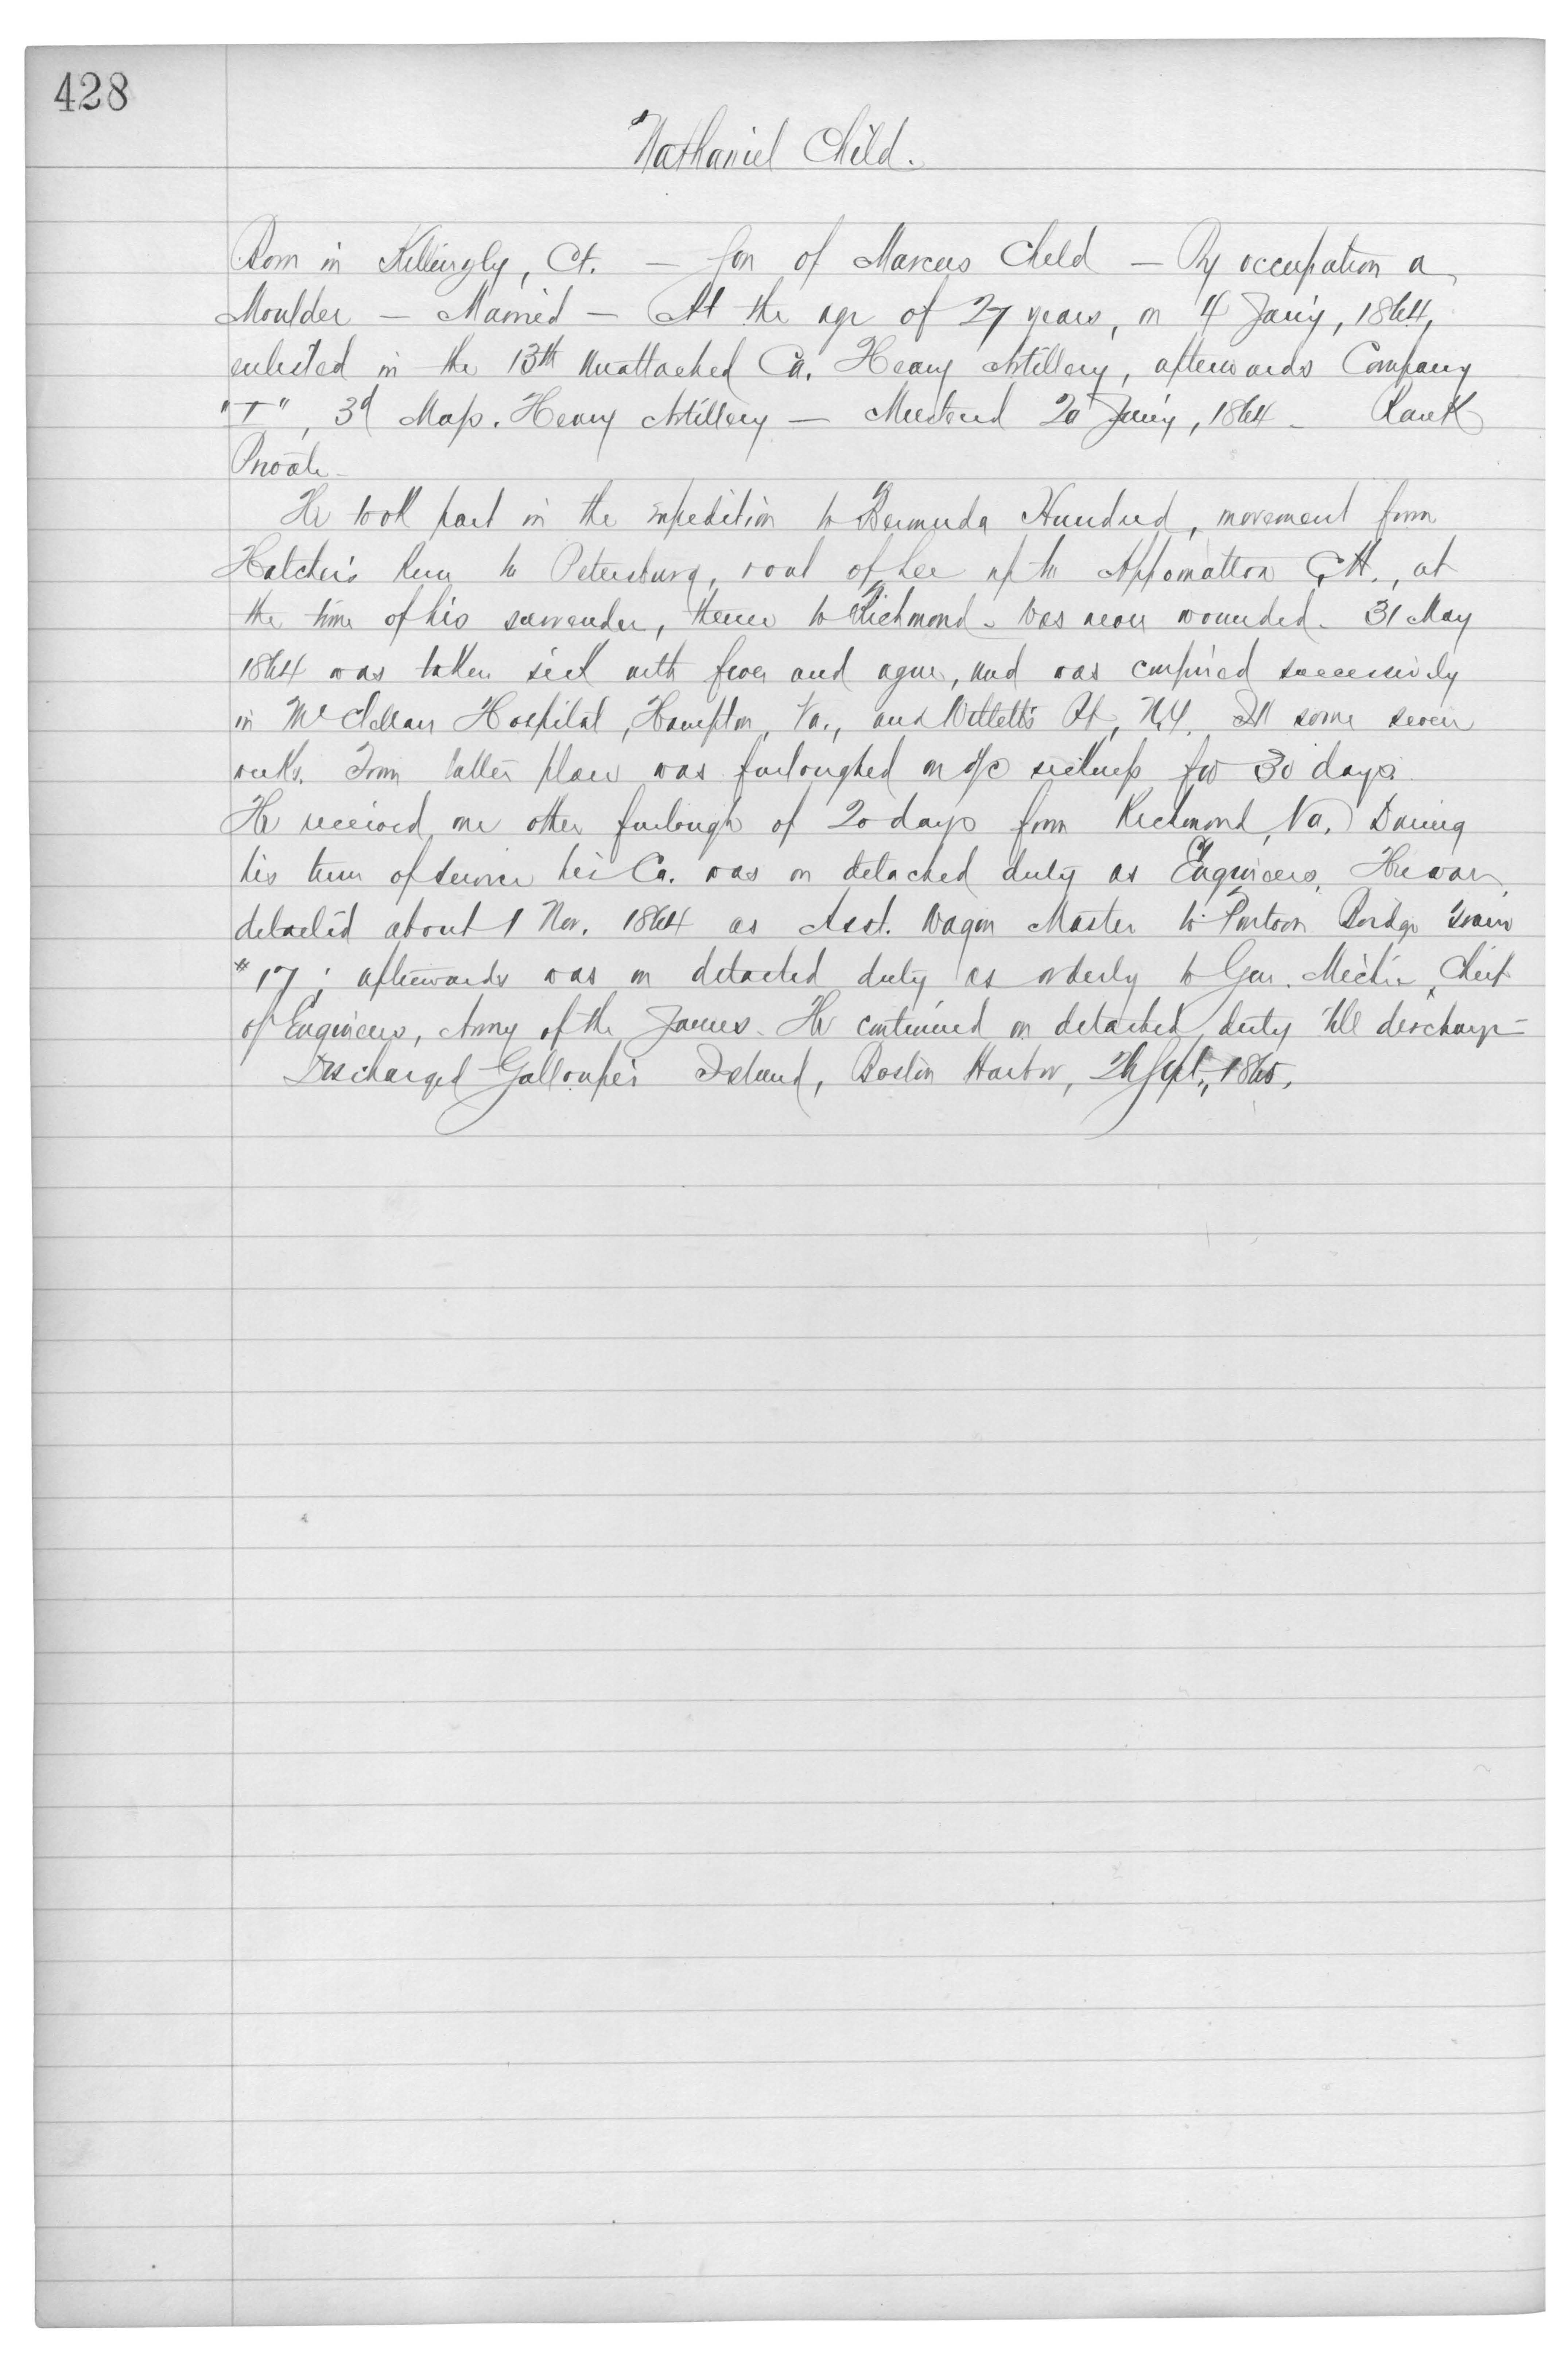 428
Nathaniel Child.
Born in Killingly, Ct. — Son of Marcus Child — By occupation a
Moulder — Married — At the age of 27 years, on 4 Jan'y, 1864,
enlisted in the 13th Unattached Co. Heavy Artillery, afterwards Company
"I", 3d Mass. Heavy Artillery — Mustered 20 Jan'y, 1864 - Rank
Private -
He took part in the expedition to Bermuda Hundred, movement from
Hatcher's Run to Petersburg, rout of Lee up to Appomattox C.H., at
the time of his surrender, thence to Richmond - Was never wounded - 31 May
1864 was taken sick with fever and ague, and was confined successively
in McClellan Hospital, Hampton, Va., and Willett's Pt., N.Y. Ill some seven
weeks. From latter place was furloughed on a/c sickness for 30 days.
He received one other furlough of 20 days from Richmond, Va. During
his term of service his Co. was on detached duty as Engineers. He was
detailed about 1 Nov. 1864 as Asst. Wagon Master to Pontoon Bridge train
#17; afterwards was on detached duty as orderly to Gen. Michie, Chief
of Engineers, Army of the James - He continued on detached duty till discharge -
Discharged Galloupe's Island, Boston Harbor, Sept., 1865.